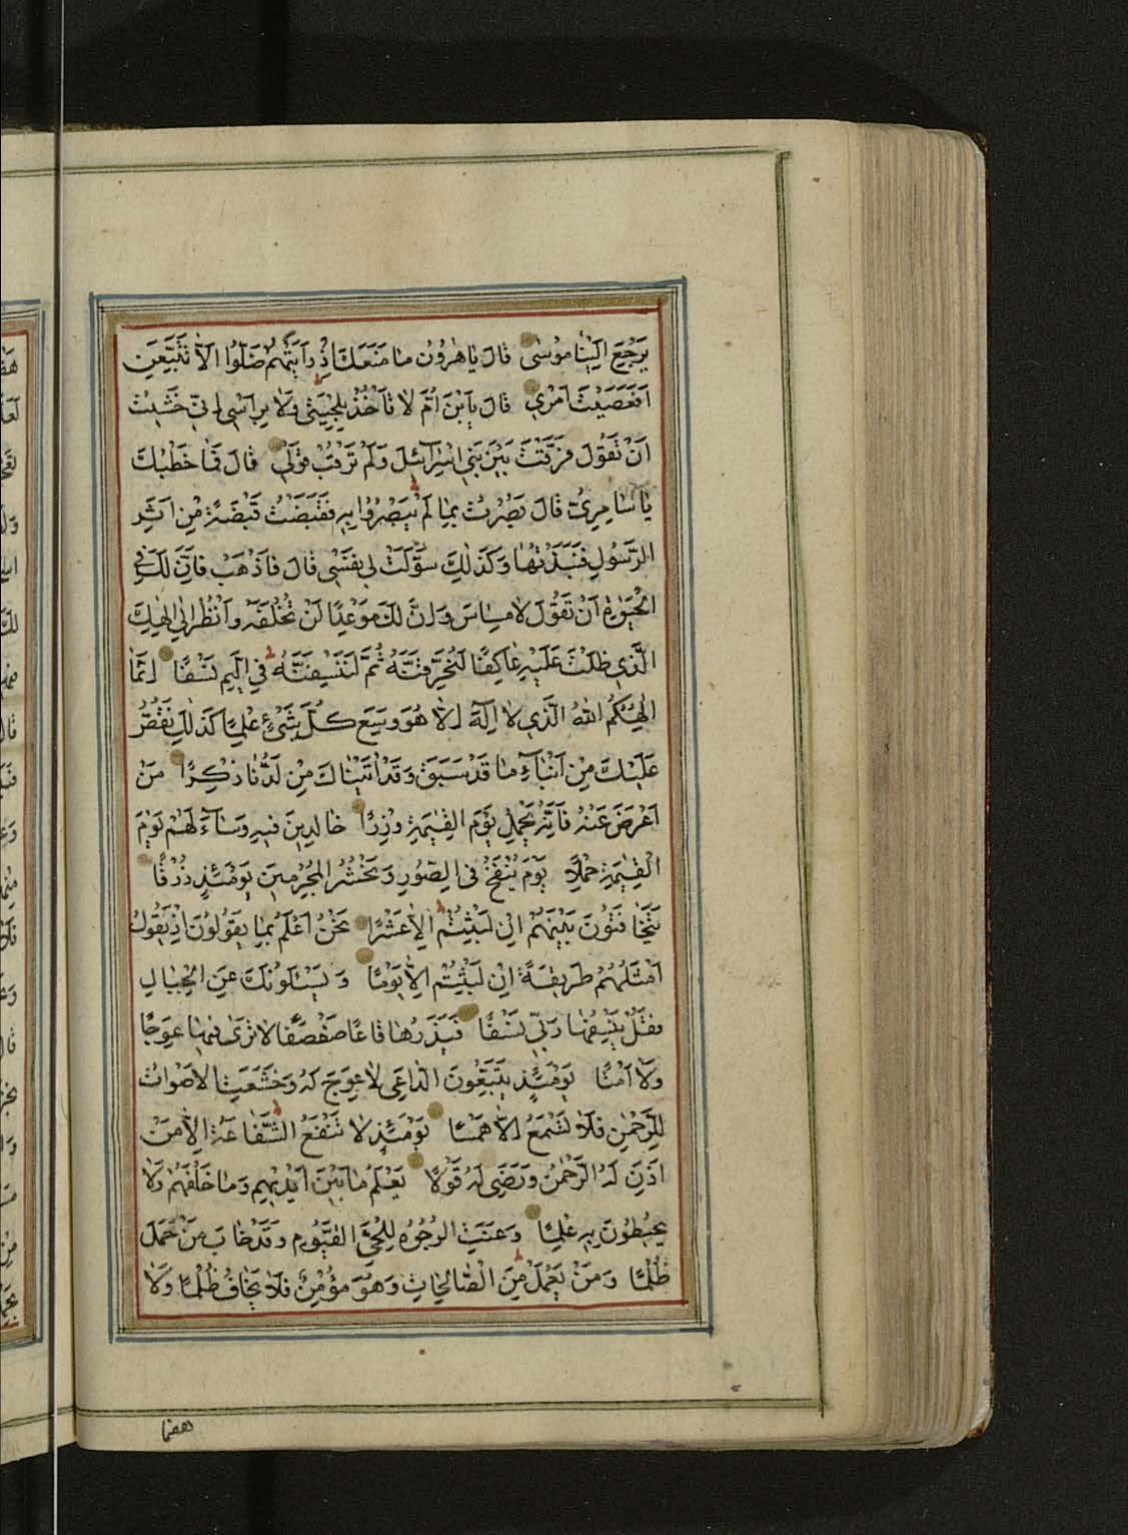 يَرْجِعَ اِلَيْنَا مُوسٰى قَالَ يَا هٰرُونُ مَا مَنَعَكَ اِذْ رَاَيْتَهُمْ ضَلُّوا اَلَّا تَتَّبِعَنِ
اَفَعَصَيْتَ اَمْرِي قَالَ يَابْنَ اُمَّ لَا تَاْخُذْ بِلِحْيَتِي وَلَا بِرَاْسِي اِنِّي خَشِيتُ
اَنْ تَقُولَ فَرَّقْتَ بَيْنَ بَنِي اِسْرَآئِلَ وَلَمْ تَرْقُبْ قَوْلِي قَالَ فَمَا خَطْبُكَ
يَا سَامِرِيُّ قَالَ بَصُرْتُ بِمَا لَمْ يَبْصُرُوا بِهِ فَقَبَضْتُ قَبْضَةً مِنْ اَثَرِ
الرَّسُولِ فَنَبَذْتُهَا وَكَذٰلِكَ سَوَّلَتْ لِي نَفْسِي قَالَ فَاذْهَبْ فَاِنَّ لَكَ فِي
الْحَيٰوةِ اَنْ تَقُولَ لَا مِسَاسَ وَاِنَّ لَكَ مَوْعِدًا لَنْ تُخْلَفَهُ وَانْظُرْ اِلٰى اِلٰهِكَ
الَّذِي ظَلْتَ عَلَيْهِ عَاكِفًا لَنُحَرِّقَنَّهُ ثُمَّ لَنَنْسِفَنَّهُ فِي الْيَمِّ نَسْفًا اِنَّمَا
اِلٰهُكُمُ اللّٰهُ الَّذِي لَا اِلٰهَ اِلَّا هُوَ وَسِعَ كُلَّ شَيْءٍ عِلْمًا كَذٰلِكَ نَقُصُّ
عَلَيْكَ مِنْ اَنْبَآءِ مَا قَدْ سَبَقَ وَقَدْ اٰتَيْنَاكَ مِنْ لَدُنَّا ذِكْرًا مَنْ
اَعْرَضَ عَنْهُ فَاِنَّهُ يَحْمِلُ يَوْمَ الْقِيٰمَةِ وِزْرًا خَالِدِينَ فِيهِ وَسَآءَ لَهُمْ يَوْمَ
الْقِيٰمَةِ حِمْلًا يَوْمَ يُنْفَخُ فِي الصُّورِ وَنَحْشُرُ الْمُجْرِمِينَ يَوْمَئِذٍ زُرْقًا
يَتَخَافَتُونَ بَيْنَهُمْ اِنْ لَبِثْتُمْ اِلَّا عَشْرًا نَحْنُ اَعْلَمُ بِمَا يَقُولُونَ اِذْ يَقُولُ
اَمْثَلُهُمْ طَرِيقَةً اِنْ لَبِثْتُمْ اِلَّا يَوْمًا وَيَسْئَلُونَكَ عَنِ الْجِبَالِ
فَقُلْ يَنْسِفُهَا رَبِّي نَسْفًا فَيَذَرُهَا قَاعًا صَفْصَفًا لَا تَرٰى فِيهَا عِوَجًا
وَلَا اَمْتًا يَوْمَئِذٍ يَتَّبِعُونَ الدَّاعِيَ لَا عِوَجَ لَهُ وَخَشَعَتِ الْاَصْوَاتُ
لِلرَّحْمٰنِ فَلَا تَسْمَعُ اِلَّا هَمْسًا يَوْمَئِذٍ لَا تَنْفَعُ الشَّفَاعَةُ اِلَّا مَنْ
اَذِنَ لَهُ الرَّحْمٰنُ وَرَضِيَ لَهُ قَوْلًا يَعْلَمُ مَا بَيْنَ اَيْدِيهِمْ وَمَا خَلْفَهُمْ وَلَا
يُحِيطُونَ بِهِ عِلْمًا وَعَنَتِ الْوُجُوهُ لِلْحَيِّ الْقَيُّومِ وَقَدْ خَابَ مَنْ حَمَلَ
ظُلْمًا وَمَنْ يَعْمَلْ مِنَ الصَّالِحَاتِ وَهُوَ مُؤْمِنٌ فَلَا يَخَافُ ظُلْمًا وَلَا
هضما